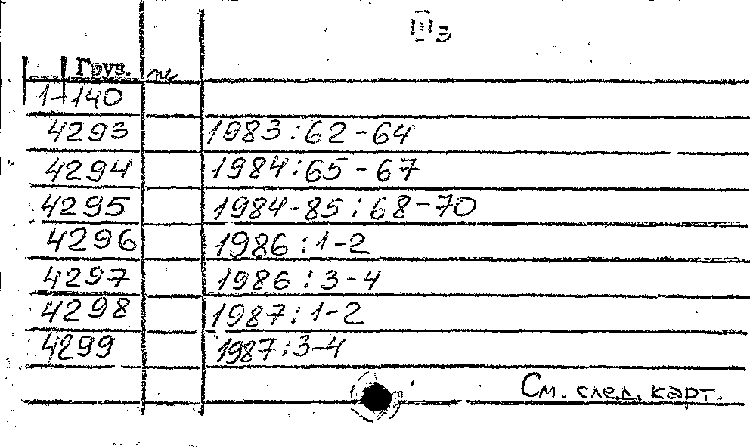 III3
Груз.
1-140
4293 1983:62-64
4294 1984:65-67
4295 1984-85:68-70
4296 1986:1-2
4297 1986:3-4
4298 1987:1-2
4299 1987:3-4
См. след. карт.